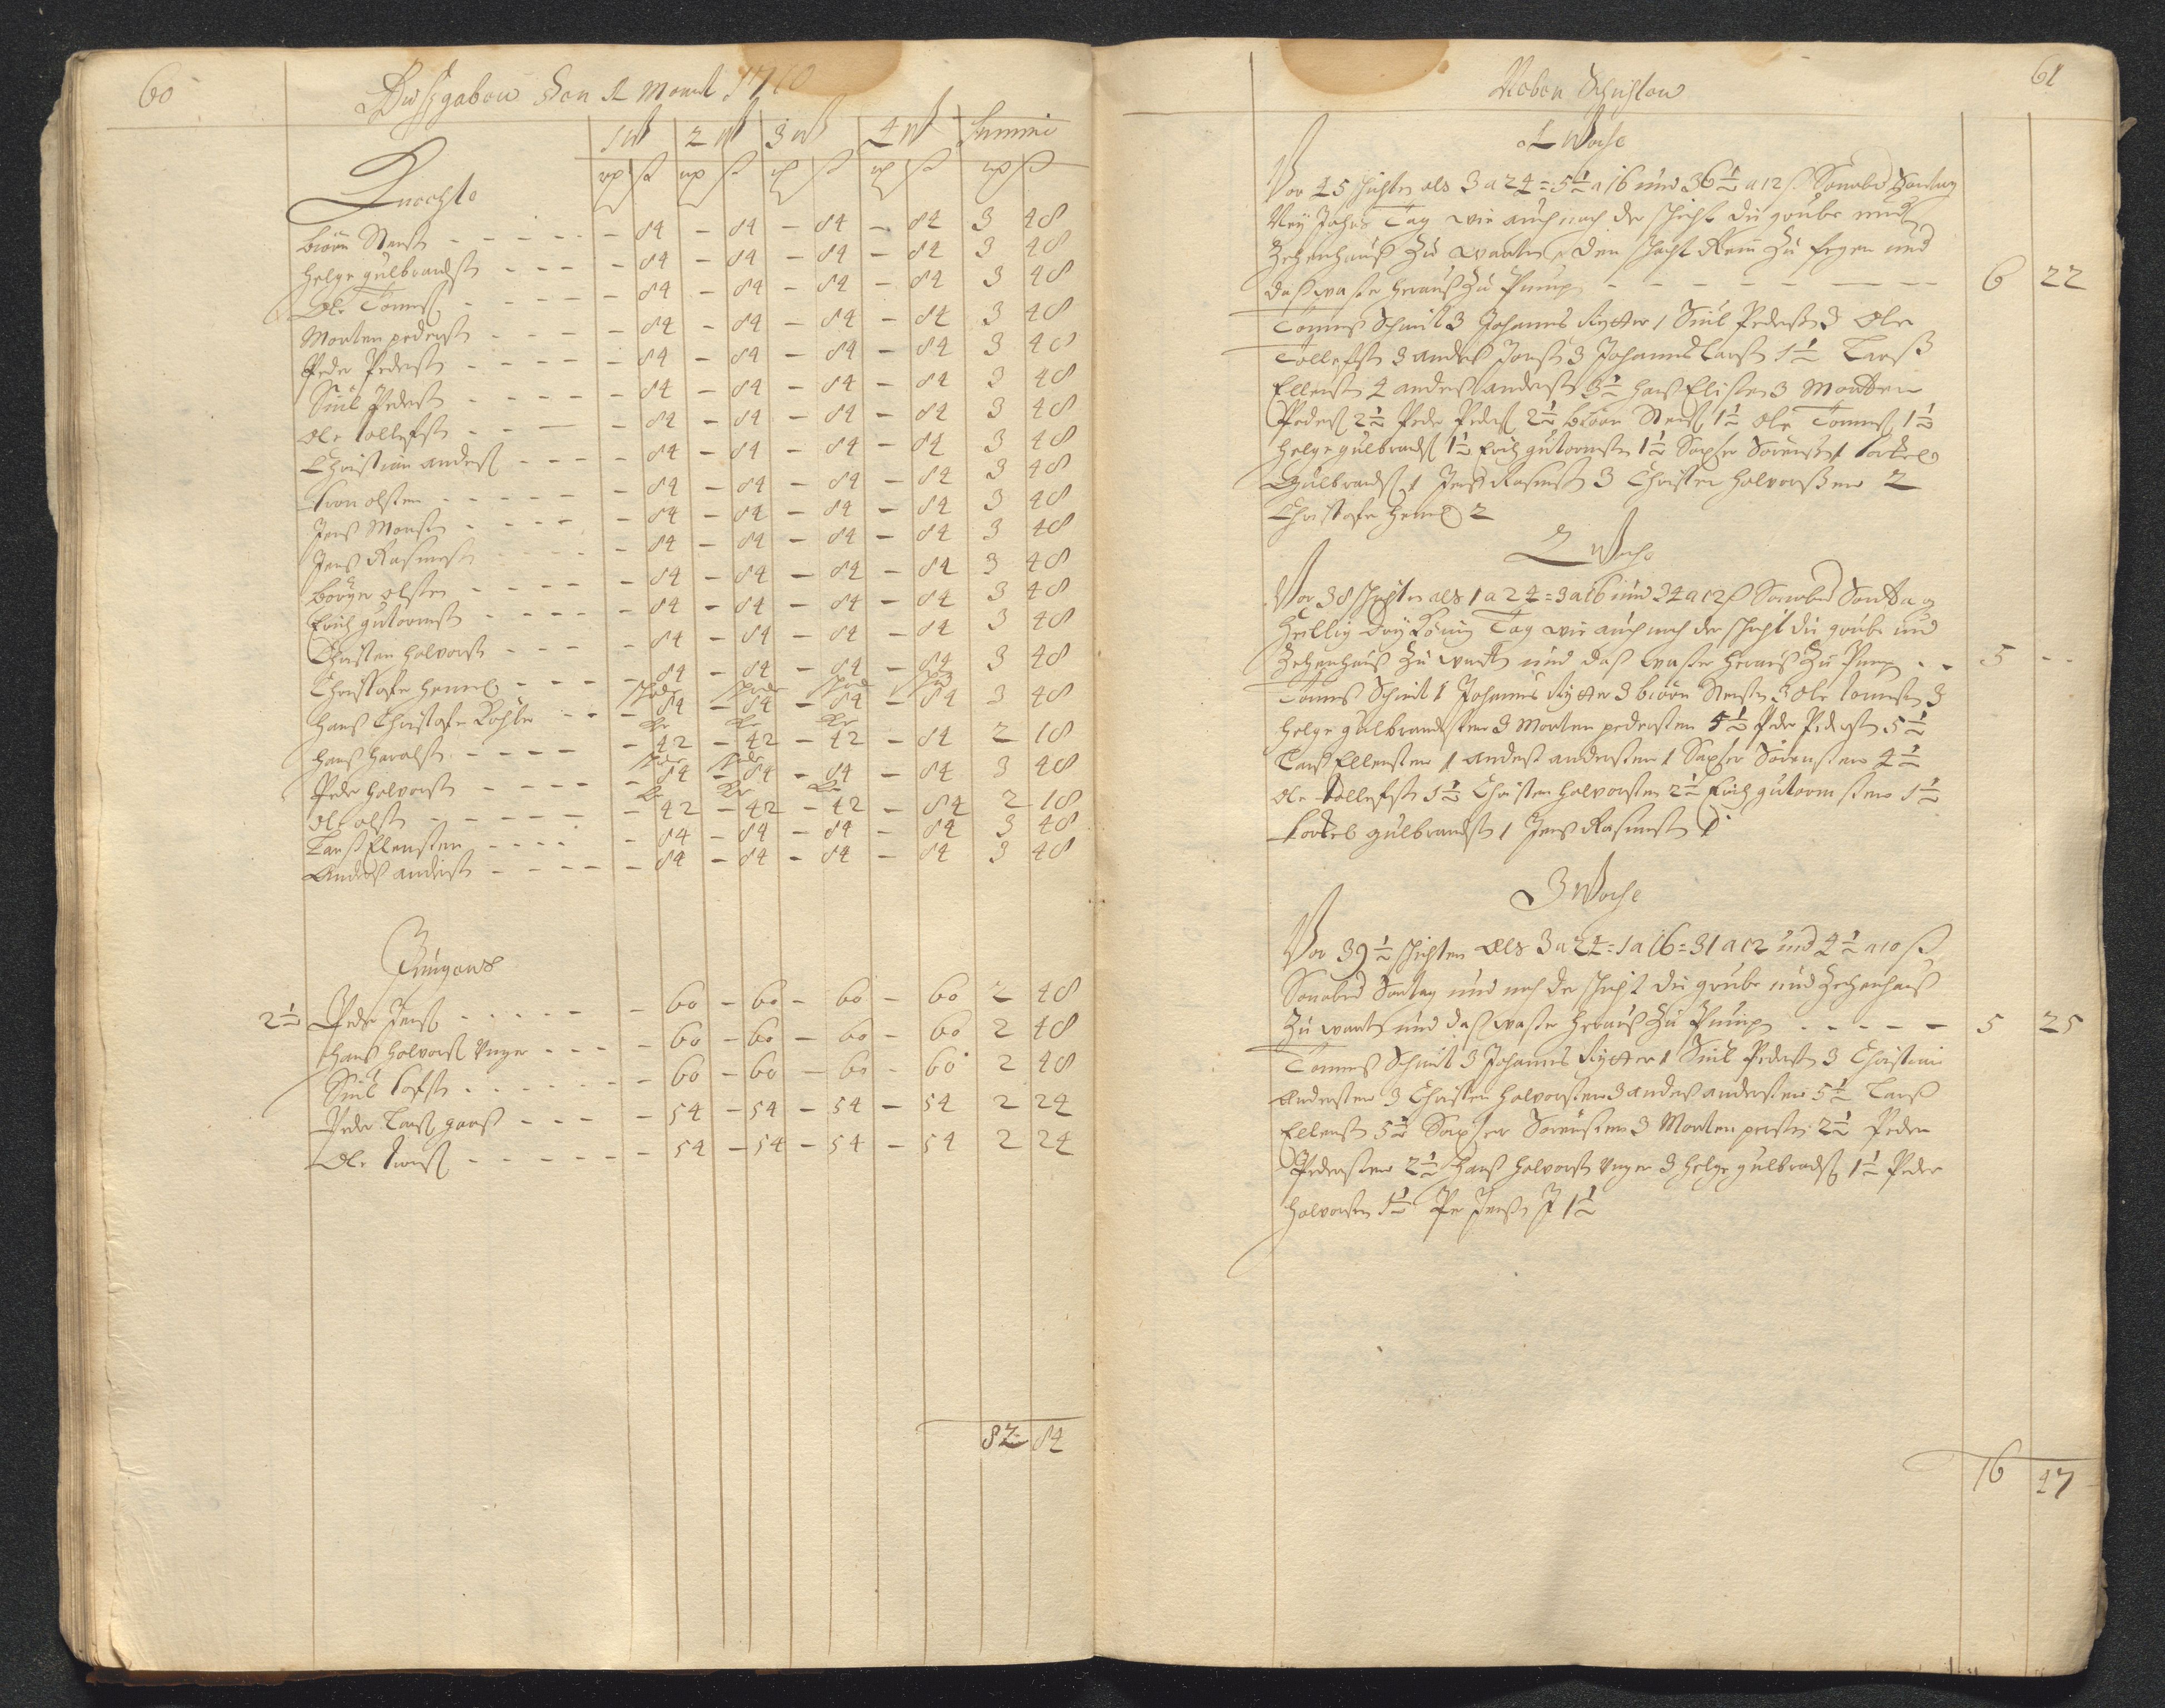 60
Außgaben Von 1 Monat 1710
1 W 2 W 3 W 4 W Summe
rp ß rp ß rp ß rp ß rp ß
Knechte
Biörn Stenß - - - - - 84 - 84 - 84 - 84 3 48
Helge gulbrandß - - - - 84 - 84 - 84 - 84 3 48
Ole Tomeß - - - - 84 - 84 - 84 - 84 3 48
Morten pederß - - - - 84 - 84 - 84 - 84 3 48
Peder Pederß - - - - 84 - 84 - 84 - 84 3 48
Siul Pederß - - - - 84 - 84 - 84 - 84 3 48
Ole tollefß - - - 84 - 84 - 84 - 84 3 48
Christian anderß - - - - 84 - 84 - 84 - 84 3 48
Tron olsten - - - - 84 - 84 - 84 - 84 3 48
Jenß Monß - - - - 84 - 84 - 84 - 84 3 48
Jenß Rasmuß - - - - 84 - 84 - 84 - 84 3 48
Börger olsten - - - - 84 - 84 - 84 - 84 3 48
Erich gutormß - - - - 84 - 84 - 84 - 84 3 48
Christen Halvorß - - - - 84 - 84 - 84 - 84 3 48
Christofer Hemel - - - - 84 - 84 - 84 - 84 3 48
Hanß Christofer Köhler - - - 84 - 84 - 84 - 84 3 48
Hanß Haralß - - - - 42 - 42 - 42 - 84 2 18
Peder Halvorß - - - - 84 - 84 - 84 - 84 3 48
Ole olß - - - - 42 - 42 - 42 - 84 2 18
Larß Elensten - - - - 84 - 84 - 84 - 84 3 48
Anderß anderß - - - - 84 - 84 - 84 - 84 3 48
Jungens
2½ Peder Jenß - - - - - 60 - 60 - 60 - 60 2 48
Hanß Halvorß Unger - - - - 60 - 60 - 60 - 60 2 48
Siul tofß - - - - - 60 - 60 - 60 - 60 2 48
Peder Larß gaaß - - - - 54 - 54 - 54 - 54 2 24
Ole - - - - - 54 - 54 - 54 - 54 2 24
82 84
61
Neben Schichten
1 Woche
Vor 45 schichten als 3 a 24 = 5½ a 16 und 36½ a 12 ß Sonabd Sontag
Neü Jahrs Tag wie auch nach der schicht die grube und
Zechenhauß zu warten, den schacht Rein zu fegen und
daß waßer herauß zu Pump - - - - - - - 6 22
Tomeß Schmit 3 Johannes Rytter 1 Siul Pederß 3 Ole
Tollefß 3 anderß Jonß 3 Johannes Larß 1½ Larß
Ellenß 4 anderß anderß 3½ Hanß Elisten 3 Morten
Pederß 2½ Peder Pederß 2½ Biörn Stenß 1½ Ole Tomeß 1½
Helge gulbrandß 1½ Erich gutormsten 1½ Sörenß 1 torkel
Gulbrandß 1 Jenß Rasmuß 3 Christen Halvorßen 2
Christofer Hemel 2
2 Woche
Vor 38 schichten als 1 a 24 = 3 a 16 und 34 a 12 ß Sonabd Sontag
Heillig drey König Tag wie auch nach der schicht die grube und
Zechenhauß zu wart und daß waßer herauß zu Pump - - 5 - -
Tomeß Schmit 1 Johannes Rytter 3 biörn Stensten 3 Ole tomeßen 3
Helge gulbrandsten 3 Morten pedersten 5½ Peder Pederß 5½
Larß Ellensten 1 anderß andersten 1 Sörensten 4½
Ole Tollefß 1½ Christen Halvorsten 2½ Erich gutormsten 1½
torkel gulbrandß 1 Jenß Rasmuß 1
3 Woche
Vor 39½ schichten als 3 a 24 = 1 a 16 = 31 a 12 und 4½ a 10 ß
Sonabd Sontag und nach der schicht die grube und Zechenhauß
zu wart und daß waßer herauß zu Pump - - - - - 5 25
Tomeß Schmit 3 Johannes Rytter 1 Siul Pederß 3 Christian
Andersten 3 Christen Halvorsten 3 anderß andersten 5½ Larß
Ellenß 5½ Sörensten 3 Morten perßen 2½ Peder
Pedersten 2½ Hanß Halvorß Unger 3 Helge gulbrandß 1½ Peder
Halvorsten 1½ Per Jenßen 1½
16 47